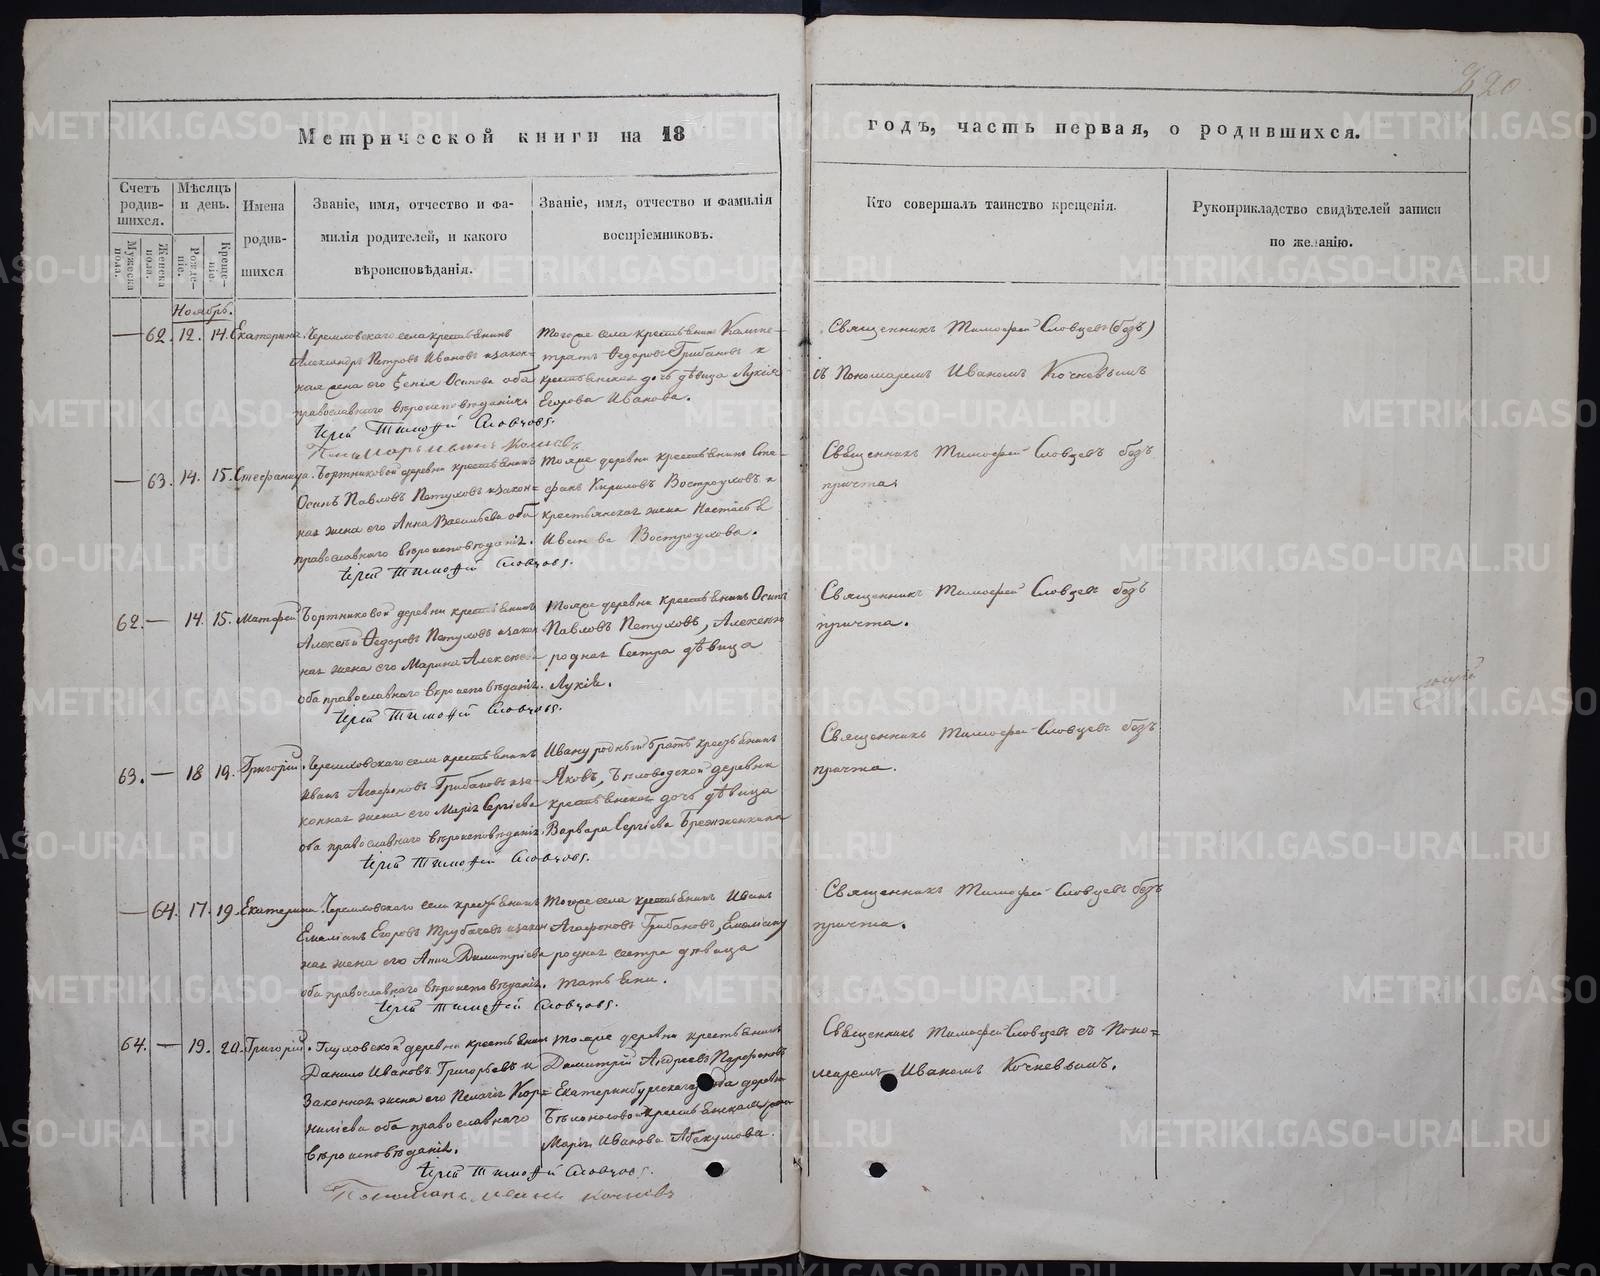 220
Метрической книги на 18
годъ, часть первая, о родившихся.
Счетъ родив-шихся.
Мужеска пола.
Женска пола.
Мѣсяцъ и день.
Рожде-ніе.
Креще-ніе.
Имена родив-шихся
Званіе, имя, отчество и фа-
милія родителей, и какого
вѣроисповѣданія.
Званіе, имя, отчество и фамилія
воспріемниковъ.
Кто совершалъ таинство крещенія.
Рукоприкладство свидѣтелей записи
по желанію.
Ноябрь.
— 62. 12. 14. Екатерина.
села крестьянинъ
Александръ Петровъ Ивановъ и закон-
ная жена его Ксенія Осипова оба
православнаго вѣроисповѣданія
Іерей Тимоѳей Словцовъ.
Пономарь Иванъ Кочневъ
Тогоже села крестьянинъ
Ѳедоровъ Грибановъ и
крестьянская дочь дѣвица Лукія
Егорова Иванова.
Священникъ Тимофей Словцевъ
съ Пономаремъ Иваномъ Кочневымъ
— 63. 14. 15. Стефанида.
Бортниковой деревни крестьянинъ
Осипъ Павловъ Петуховъ и закон=
ная жена его Анна Васильева оба
православнаго вѣроисповѣданія.
Іерей Тимоѳей Словцовъ.
Тояже деревни крестьянинъ Сте-
фанъ Кириловъ Востроуховъ и
крестьянская жена Настасья
Востроухова.
Священникъ Тимофей Словцевъ безъ
причта.
62. — 14. 15. Матфей
Бортниковой деревни крестьянинъ
Алексѣй Ѳедоровъ Петуховъ и закон
ная жена его Марина Алексѣева
оба православнаго вѣроисповѣданія.
Іерей Тимоѳей Словцовъ.
Тояже деревни крестьянинъ Осипъ
Павловъ Петуховъ, Алексѣю
родная сестра дѣвица
Лукія.
Священникъ Тимофей Словцевъ безъ
причта.
63. — 18 19. Григорій.
села крестьянинъ
Иванъ Агафоновъ Грибановъ и за-
конная жена его Марія Сергіева
оба православнаго вѣроисповѣданія.
Іерей Тимоѳей Словцовъ.
Ивану родный братъ крестьянинъ
Яковъ, Бѣловодской деревни
крестьянская дочь дѣвица
Варвара Сергіева
Священникъ Тимофей Словцевъ безъ
причта.
— 64. 17. 19. Екатерина.
села крестьянинъ
Емеліанъ Егоровъ Трубачевъ и закон
ная жена его Анна Димитріева
оба православнаго вѣроисповѣданія.
Іерей Тимоѳей Словцовъ.
Тогоже села крестьянинъ Иванъ
Агафоновъ Грибановъ, Емеліану
родная сестра дѣвица
Татьяна.
Священникъ Тимофей Словцевъ безъ
причта.
64. — 19. 20. Григорій.
Глуховской деревни крестьянинъ
Данило Ивановъ Григорьевъ и
Законная жена его Пелагія Кор=
ниліева оба православнаго
вѣроисповѣданія.
Іерей Тимоѳей Словцовъ.
Пономарь Иванъ Кочневъ
Тояже деревни крестьянинъ
Димитрій Андреевъ Парфеновъ
Екатеринбургскаго уѣзда деревни
крестьянская
Марія Иванова Абакумова.
Священникъ Тимофей Словцевъ съ Поно=
маремъ Иваномъ Кочневымъ.
METRIKI.GASO-URAL.RU